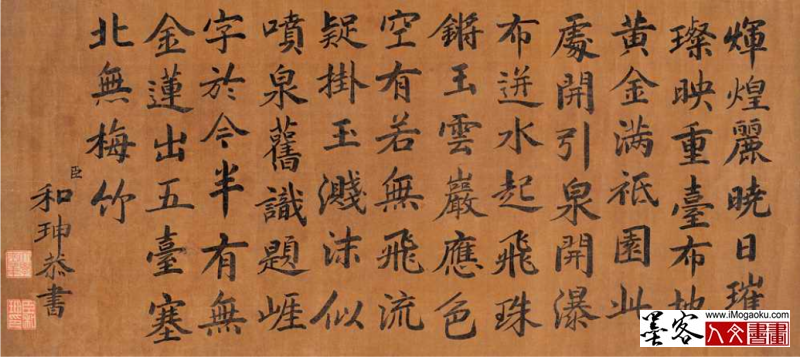 煇煌麗曉日璀
璨映重臺布地
黄金满祗園此
處開引泉開瀑
布迸水起飛珠
鏘玉雲巖應色
空有若無飛流
疑掛玉濺沫似
噴泉舊識題崕
字於今半有無
金蓮出五臺塞
北無梅竹
臣和珅恭書
墨客
www.iMogaoku.com
人文書畫